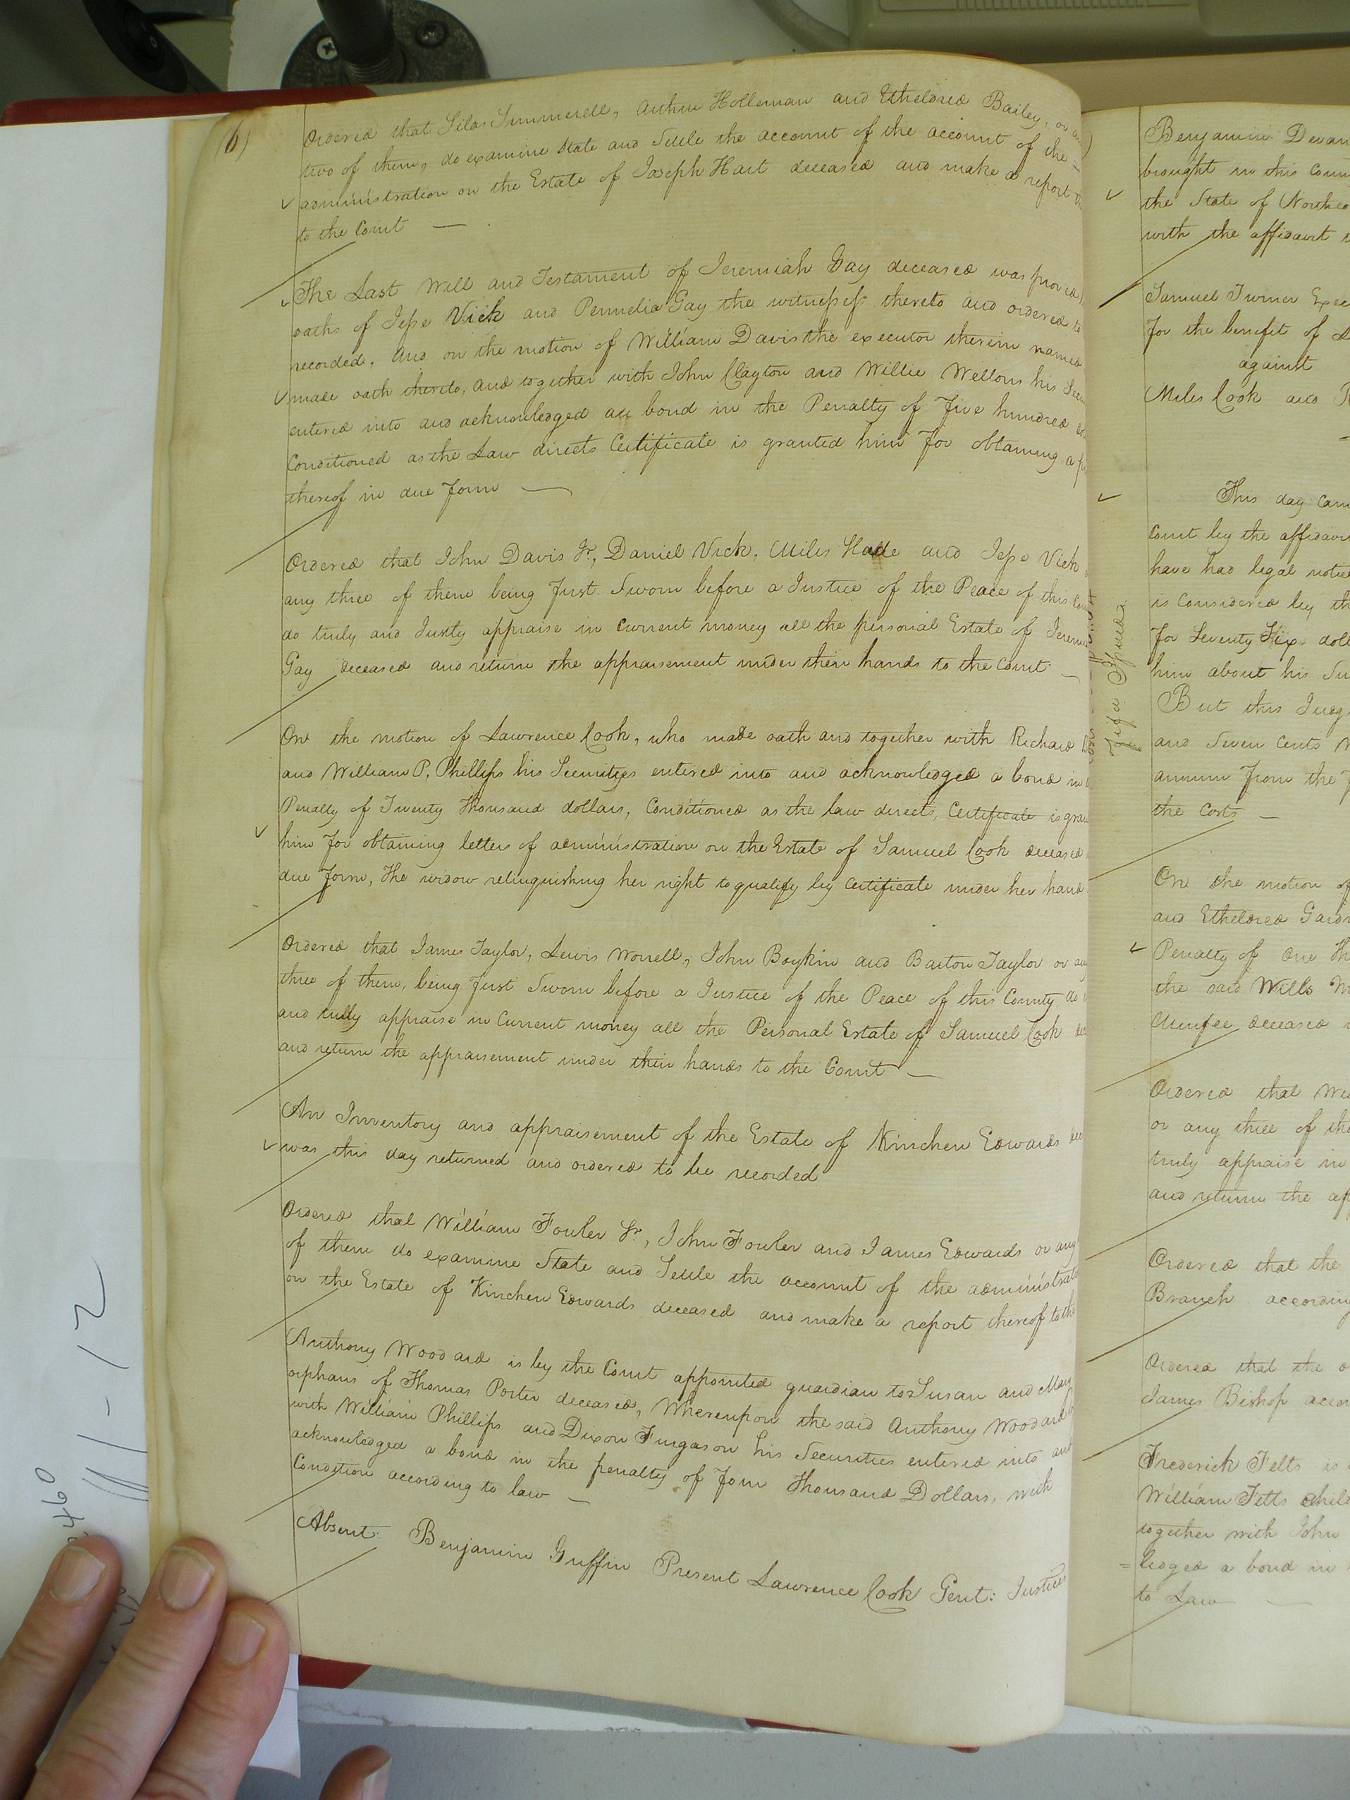 6)
Ordered that Silas Summerell, Arthur Holleman and Etheldred Bailey, or any
two of them, do examine state and Settle the account of the account of the
administration on the Estate of Joseph Hart deceased and make a report
to the Court —
The Last Will and Testament of Jeremiah Gay deceased was proved
oaths of Jesse Vick and Permelia Gay the witnesses thereto and ordered to
recorded. And on the motion of William Davis the executor therein named
made oath thereto, and together with John Clayton and Willie Wellons his
entered into and acknowledged an bond in the Penalty of Five hundred
Conditioned as the Law directs Certificate is granted him For obtaining a
thereof in due Form —
Ordered that John Davis Jr, Daniel Vick, Miles and Jesse Vick
any three of them being First Sworn before a Justice of the Peace of this
do truly and Justly appraise in Current money all the personal Estate of
Gay deceased and return the appraisement under their hands to the Court —
On the motion of Lawrence Cook, who made oath and together with Richard
and William P. Phillips his Securities entered into and acknowledged a bond in
Penalty of Twenty Thousand dollars, Conditioned as the law directs, Certificate is
him For obtaining letters of administration on the Estate of Samuel Cook deceased
due Form, The widow relinquishing her right to qualify by Certificate under her hand
Ordered that James Taylor, Lewis Worrell, John Boykin and Barton Taylor or any
three of them, being First Sworn before a Justice of the Peace of this County do
and appraise in Current money all the Personal Estate of Samuel Cook
and return the appraisement under their hands to the Court —
An Inventory and appraisement of the Estate of Kinchen Edwards
was this day returned and ordered to be recorded
Ordered that William Fowler Sr, John Fowler and James Edwards or any
of them do examine State and Settle the account of the
on the Estate of Kinchen Edwards deceased and make a report thereof to the
Anthony Woodard is by the Court appointed guardian to Susan and
orphans of Thomas Porter deceased, Whereupon the said Anthony Woodard
with William Phillips and Dixon Furgason his Securities entered into and
acknowledged a bond in the penalty of Four Thousand Dollars, with
Condition according to law —
Absent Benjamin Griffin Present Lawrence Cook Gent: Justices
Benjamin
brought in this
the State of
with the affidavit
Samuel Turner
For the benefit of
against
Miles Cook and
This day
Court by the
have had legal
is Considered by
For Seventy Six
him about his
But this
and Seven Cents
annum From the
the Costs —
On the motion of
and Etheldred
Penalty of One
the said Wills
deceased
Ordered that
or any three of
truly appraise in
and return the
Ordered that the
Branch
Ordered that the
James Bishop
Frederick Felts is
William Felts
together with John
=ledged a bond in
to Law —
11-12